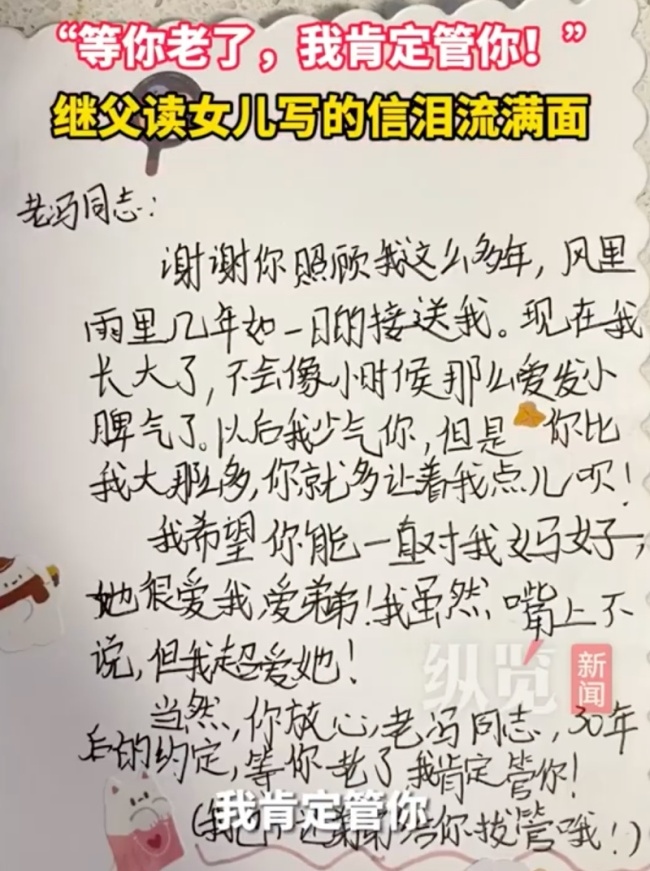 “等你老了，我肯定管你！”
继父读女儿写的信泪流满面
老冯同志：
谢谢你照顾我这么多年，风里
雨里几年如一日的接送我。现在我
长大了，不会像小时候那么爱发小
脾气了。以后我少气你，但是你比
我大那么多，你就多让着我点儿呗！
我希望你能一直对我妈好，
她很爱我，爱弟弟！我虽然嘴上不
说，但我超爱她！
纵览新闻
当然，你放心，老冯同志，30年
后的约定，等你老了我肯定管你！
我肯定管你
给你拔管哦！）